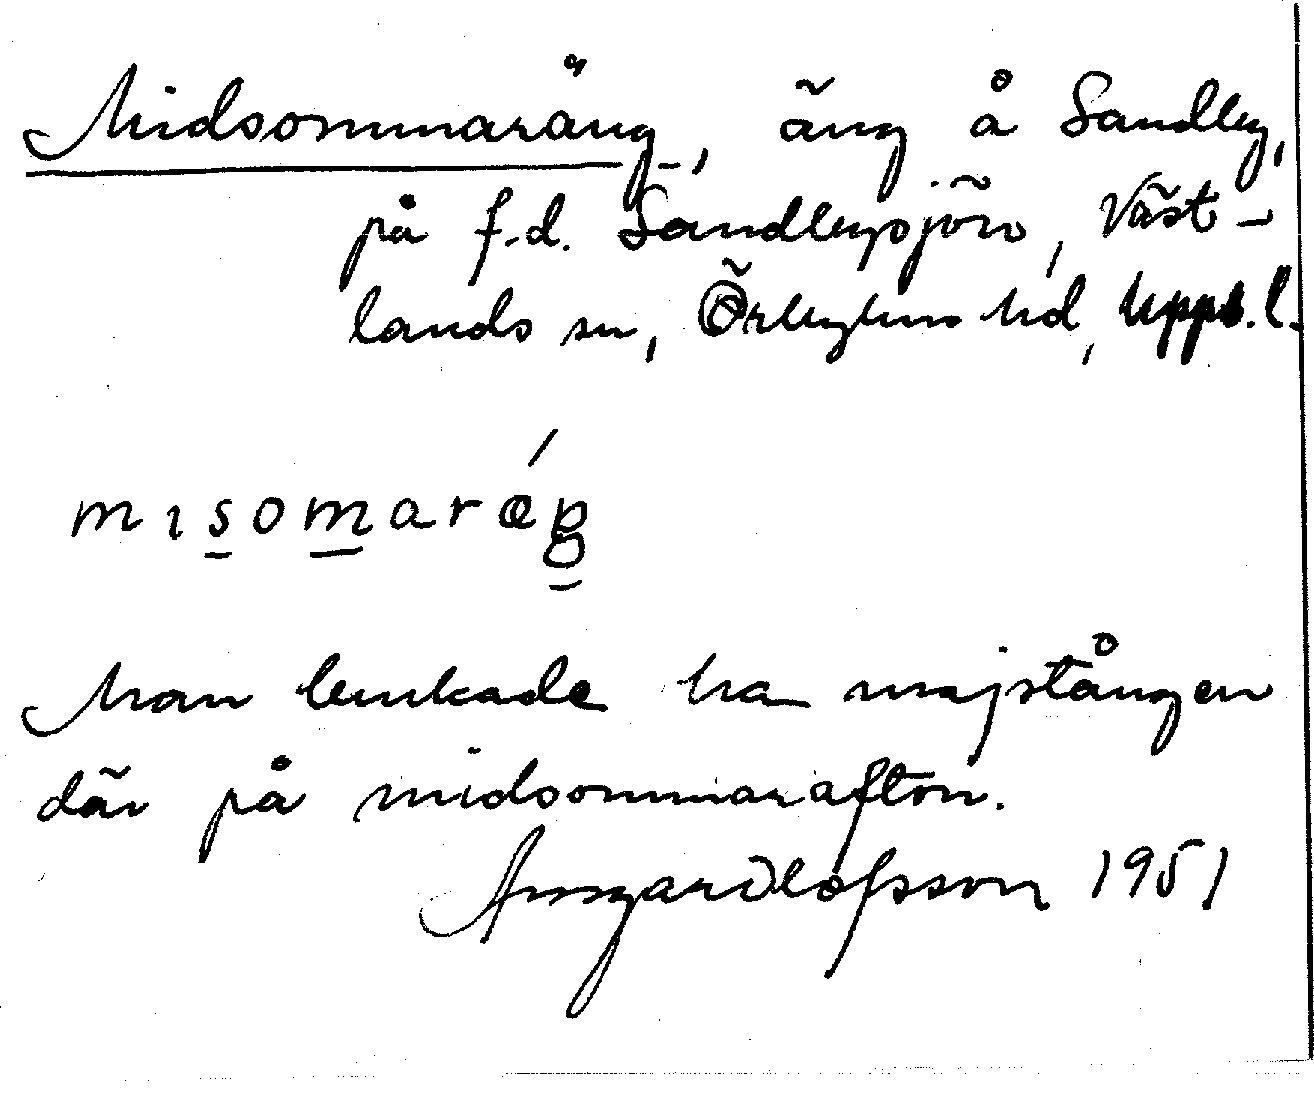 Midsommaräng, äng å Sandby,
på f.d. Sandbysjön, Väst-
lands sn, Örbyhus hd, Upps.l.
mısomaræŋ
Man brukade ha majstången
där på midsommarafton.
Ansgar Olofsson 1951